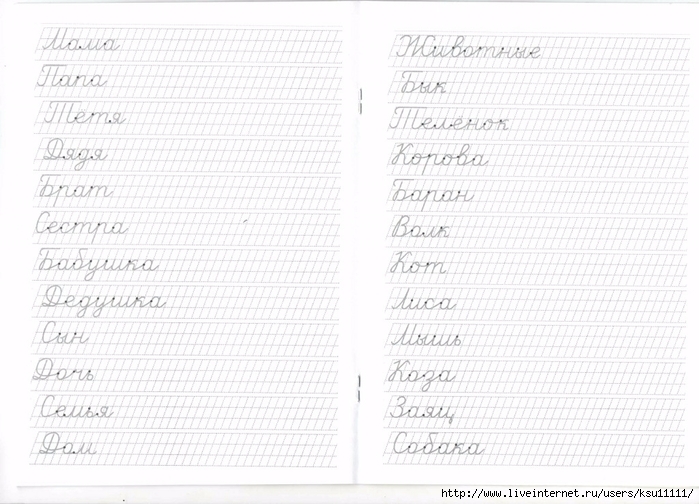 Мама
Папа
Тетя
Дядя
Брат
Сестра
Бабушка
Дедушка
Сын
Дочь
Семья
Дом
Животные
Бык
Теленок
Корова
Баран
Волк
Кот
Лиса
Мышь
Коза
Заяц
Собака
http://www.liveinternet.ru/users/ksu11111/